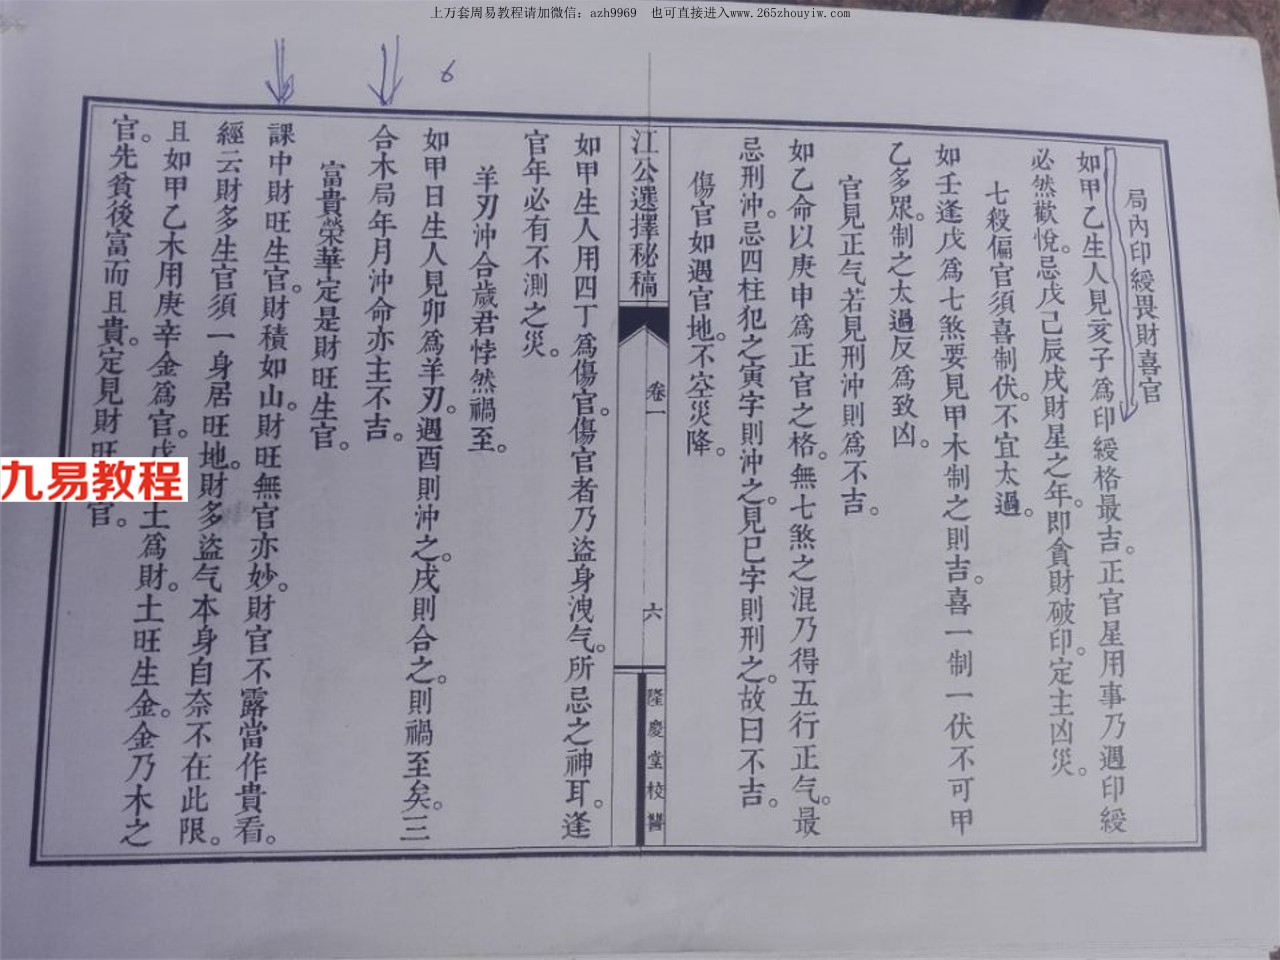 上万套周易教程请加微信：azh9969　也可直接进入www.265zhouyiw.com
6
局內印綬畏財喜官
如甲乙生人見亥子為印綬格最吉。正官星用事乃遇印綬
必然歡悅。忌戊己辰戌財星之年。即貪財破印。定主凶災。
七殺偏官須喜制伏。不宜太過。
如壬逢戊為七煞要見甲木制之則吉。喜一制一伏不可甲
乙多眾。制之太過反為致凶。
官見正气若見刑沖則為不吉。
如乙命以庚申為正官之格。無七煞之混乃得五行正气。最
忌刑沖。忌四柱犯之寅字則沖之。見巳字則刑之。故曰不吉。
傷官如遇官地。不空災降。
江公選擇秘稿
卷一
六
隆慶堂校讐
如甲生人用四丁為傷官。傷官者乃盜身洩气。所忌之神耳。逢
官年必有不測之災。
羊刃沖合歲君悖然禍至。
如甲日生人見卯為羊刃。遇酉則沖之。戌則合之。則禍至矣。三
合木局年月沖命亦主不吉。
富貴榮華定是財旺生官。
課中財旺生官。財積如山。財旺無官亦妙。財官不露當作貴看。
經云財多生官須一身居旺地。財多盜气本身自奈不在此限。
且如甲乙木用庚辛金為官。戊 土為財。土旺生金。金乃木之
官。先貧後富而且貴。定見財旺 官。
九易教程